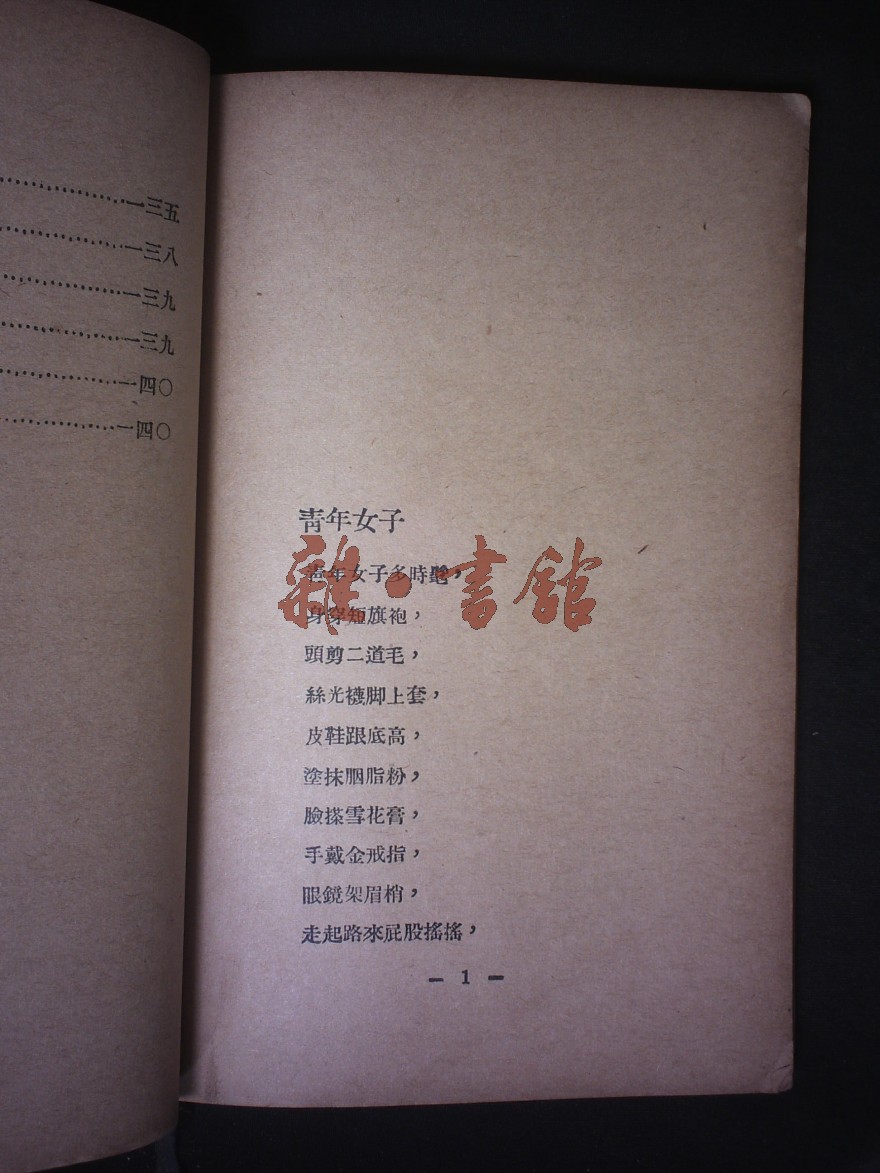 一三五
一三八
一三九
一三九
一四〇
一四〇
青年女子
青年女子多時髦，
身穿短旗袍，
頭剪二道毛，
絲光襪脚上套，
皮鞋跟底高，
塗抹胭脂粉，
臉搽雪花膏，
手戴金戒指，
眼鏡架眉梢，
走起路來屁股搖搖，
— 1 —
雜·書館